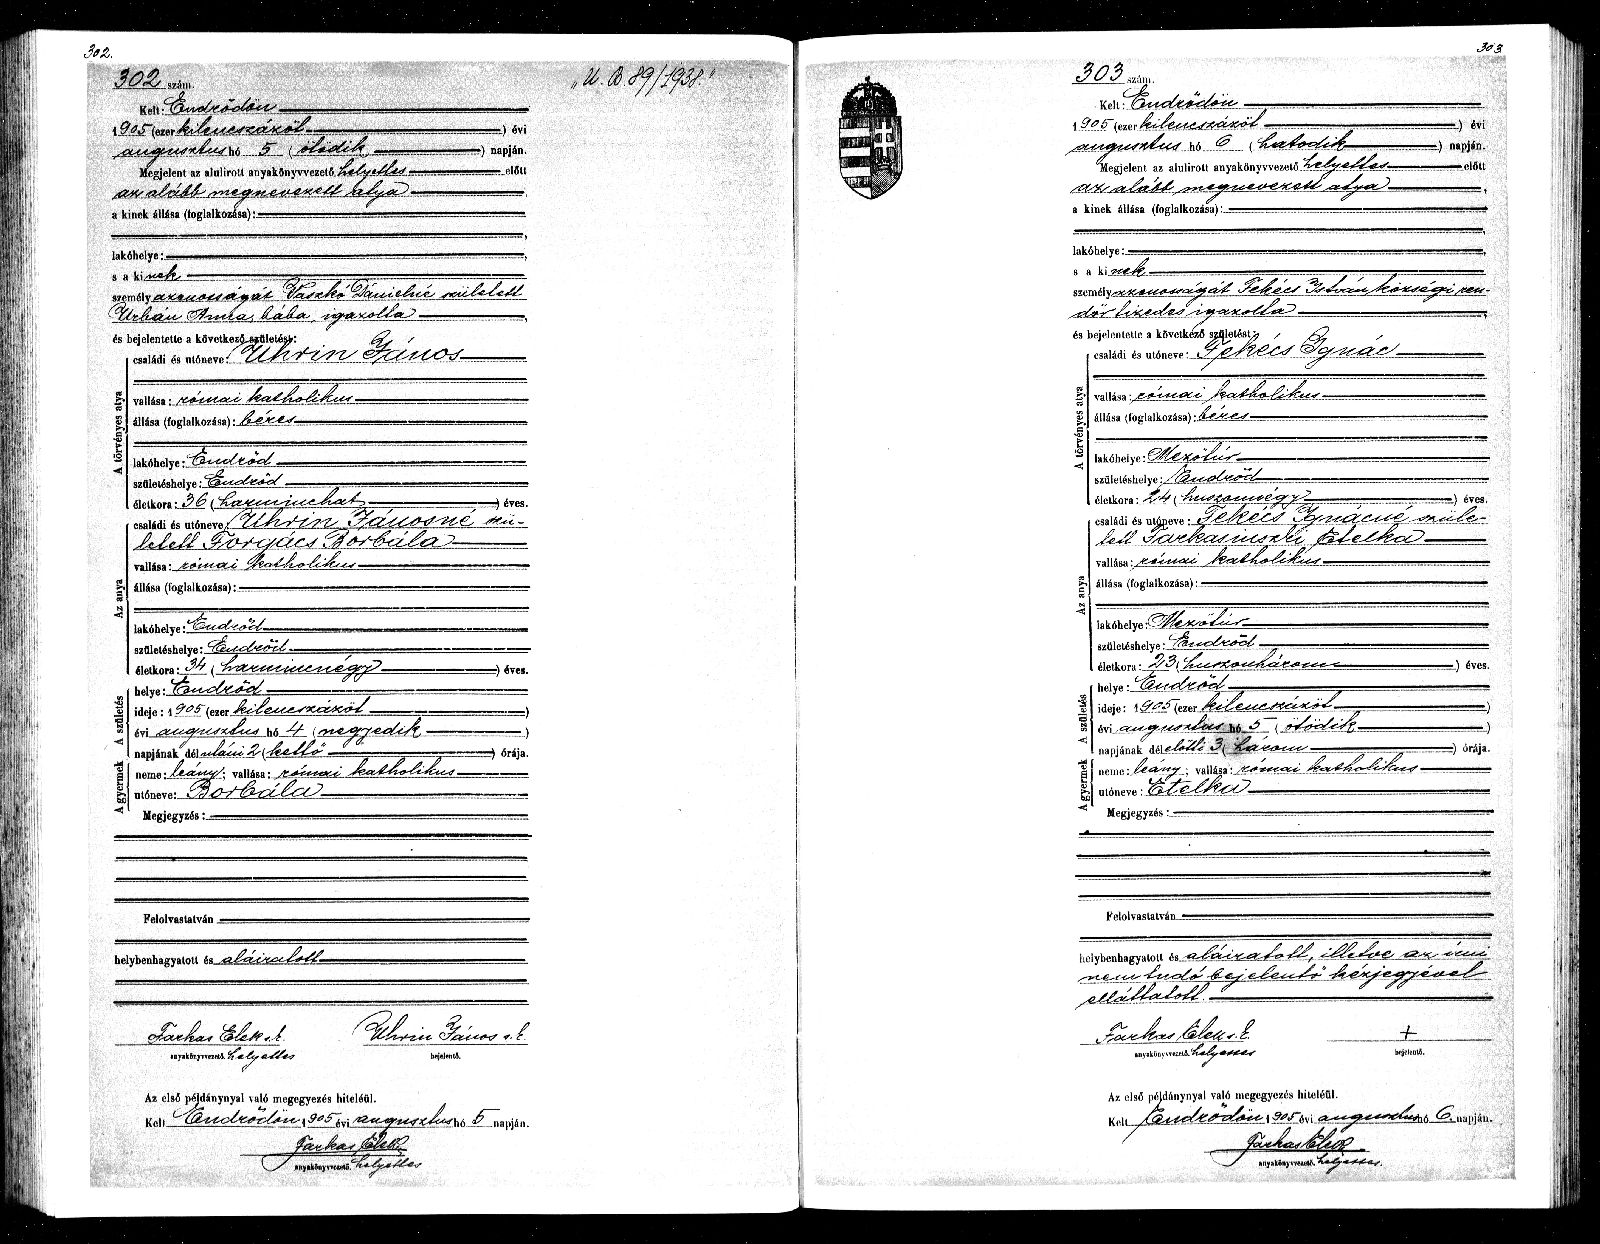 302.
302 szám.
„U. B 89/1938.”
Kelt: Endrődön
1905 (ezer kilencszázöt) évi
augusztus hó 5 (ötödik) napján.
Megjelent az alulirott anyakönyvvezető helyettes előtt
az alább megnevezett atya,
a kinek állása (foglalkozása):
lakóhelye:
s a kinek
személyazonosságát Vaszkó Dánielné született
Urbán Anna, bába, igazolta,
és bejelentette a következő születést:
A törvényes atya
családi és utóneve: Uhrin János
vallása: római katholikus
állása (foglalkozása): béres
lakóhelye: Endrőd
születéshelye: Endrőd
életkora: 36 (harminchat) éves.
Az anya
családi és utóneve: Uhrin Jánosné szü-
letett Forgács Borbála
vallása: római katholikus
állása (foglalkozása):
lakóhelye: Endrőd
születéshelye: Endrőd
életkora: 34 (harmincnégy) éves.
A születés
helye: Endrőd
ideje: 1905 (ezer kilencszázöt)
évi augusztus hó 4 (negyedik)
napjának délutáni 2 (kettő) órája.
A gyermek
neme: leány; vallása: római katholikus
utóneve: Borbála
Megjegyzés:
Felolvastatván
helybenhagyatott és aláiratott
Farkas Elek s. k. Uhrin János s. k.
anyakönyvvezető. helyettes bejelentő.
Az első példánynyal való megegyezés hiteléül.
Kelt Endrődön 1905 évi augusztus hó 5 napján.
Farkas Elek
anyakönyvvezető. helyettes
303
303 szám.
Kelt: Endrődön
1905 (ezer kilencszázöt) évi
augusztus hó 6 (hatodik) napján.
Megjelent az alulirott anyakönyvvezető helyettes előtt
az alább megnevezett atya,
a kinek állása (foglalkozása):
lakóhelye:
s a kinek
személyazonosságát Tekécs István községi ren-
dőr tizedes igazolta,
és bejelentette a következő születést:
A törvényes atya
családi és utóneve: Tekécs Ignác
vallása: római katholikus
állása (foglalkozása): béres
lakóhelye: Mezőtúr
születéshelye: Endrőd
életkora: 24 (huszonnégy) éves.
Az anya
családi és utóneve: Tekécs Ignácné szüle-
tett Farkasinszki Etelka
vallása: római katholikus
állása (foglalkozása):
lakóhelye: Mezőtúr
születéshelye: Endrőd
életkora: 23 (huszonhárom) éves.
A születés
helye: Endrőd
ideje: 1905 (ezer kilencszázöt)
évi augusztus hó 5 (ötödik)
napjának délelőtti 3 (három) órája.
A gyermek
neme: leány; vallása: római katholikus
utóneve: Etelka
Megjegyzés:
Felolvastatván
helybenhagyatott és aláiratott, illetve az irni
nem tudó bejelentő kézjegyével
elláttatott.
Farkas Elek s. k. +
anyakönyvvezető. helyettes bejelentő.
Az első példánynyal való megegyezés hiteléül.
Kelt Endrődön 1905 évi augusztus hó 6. napján.
Farkas Elek
anyakönyvvezető. helyettes.